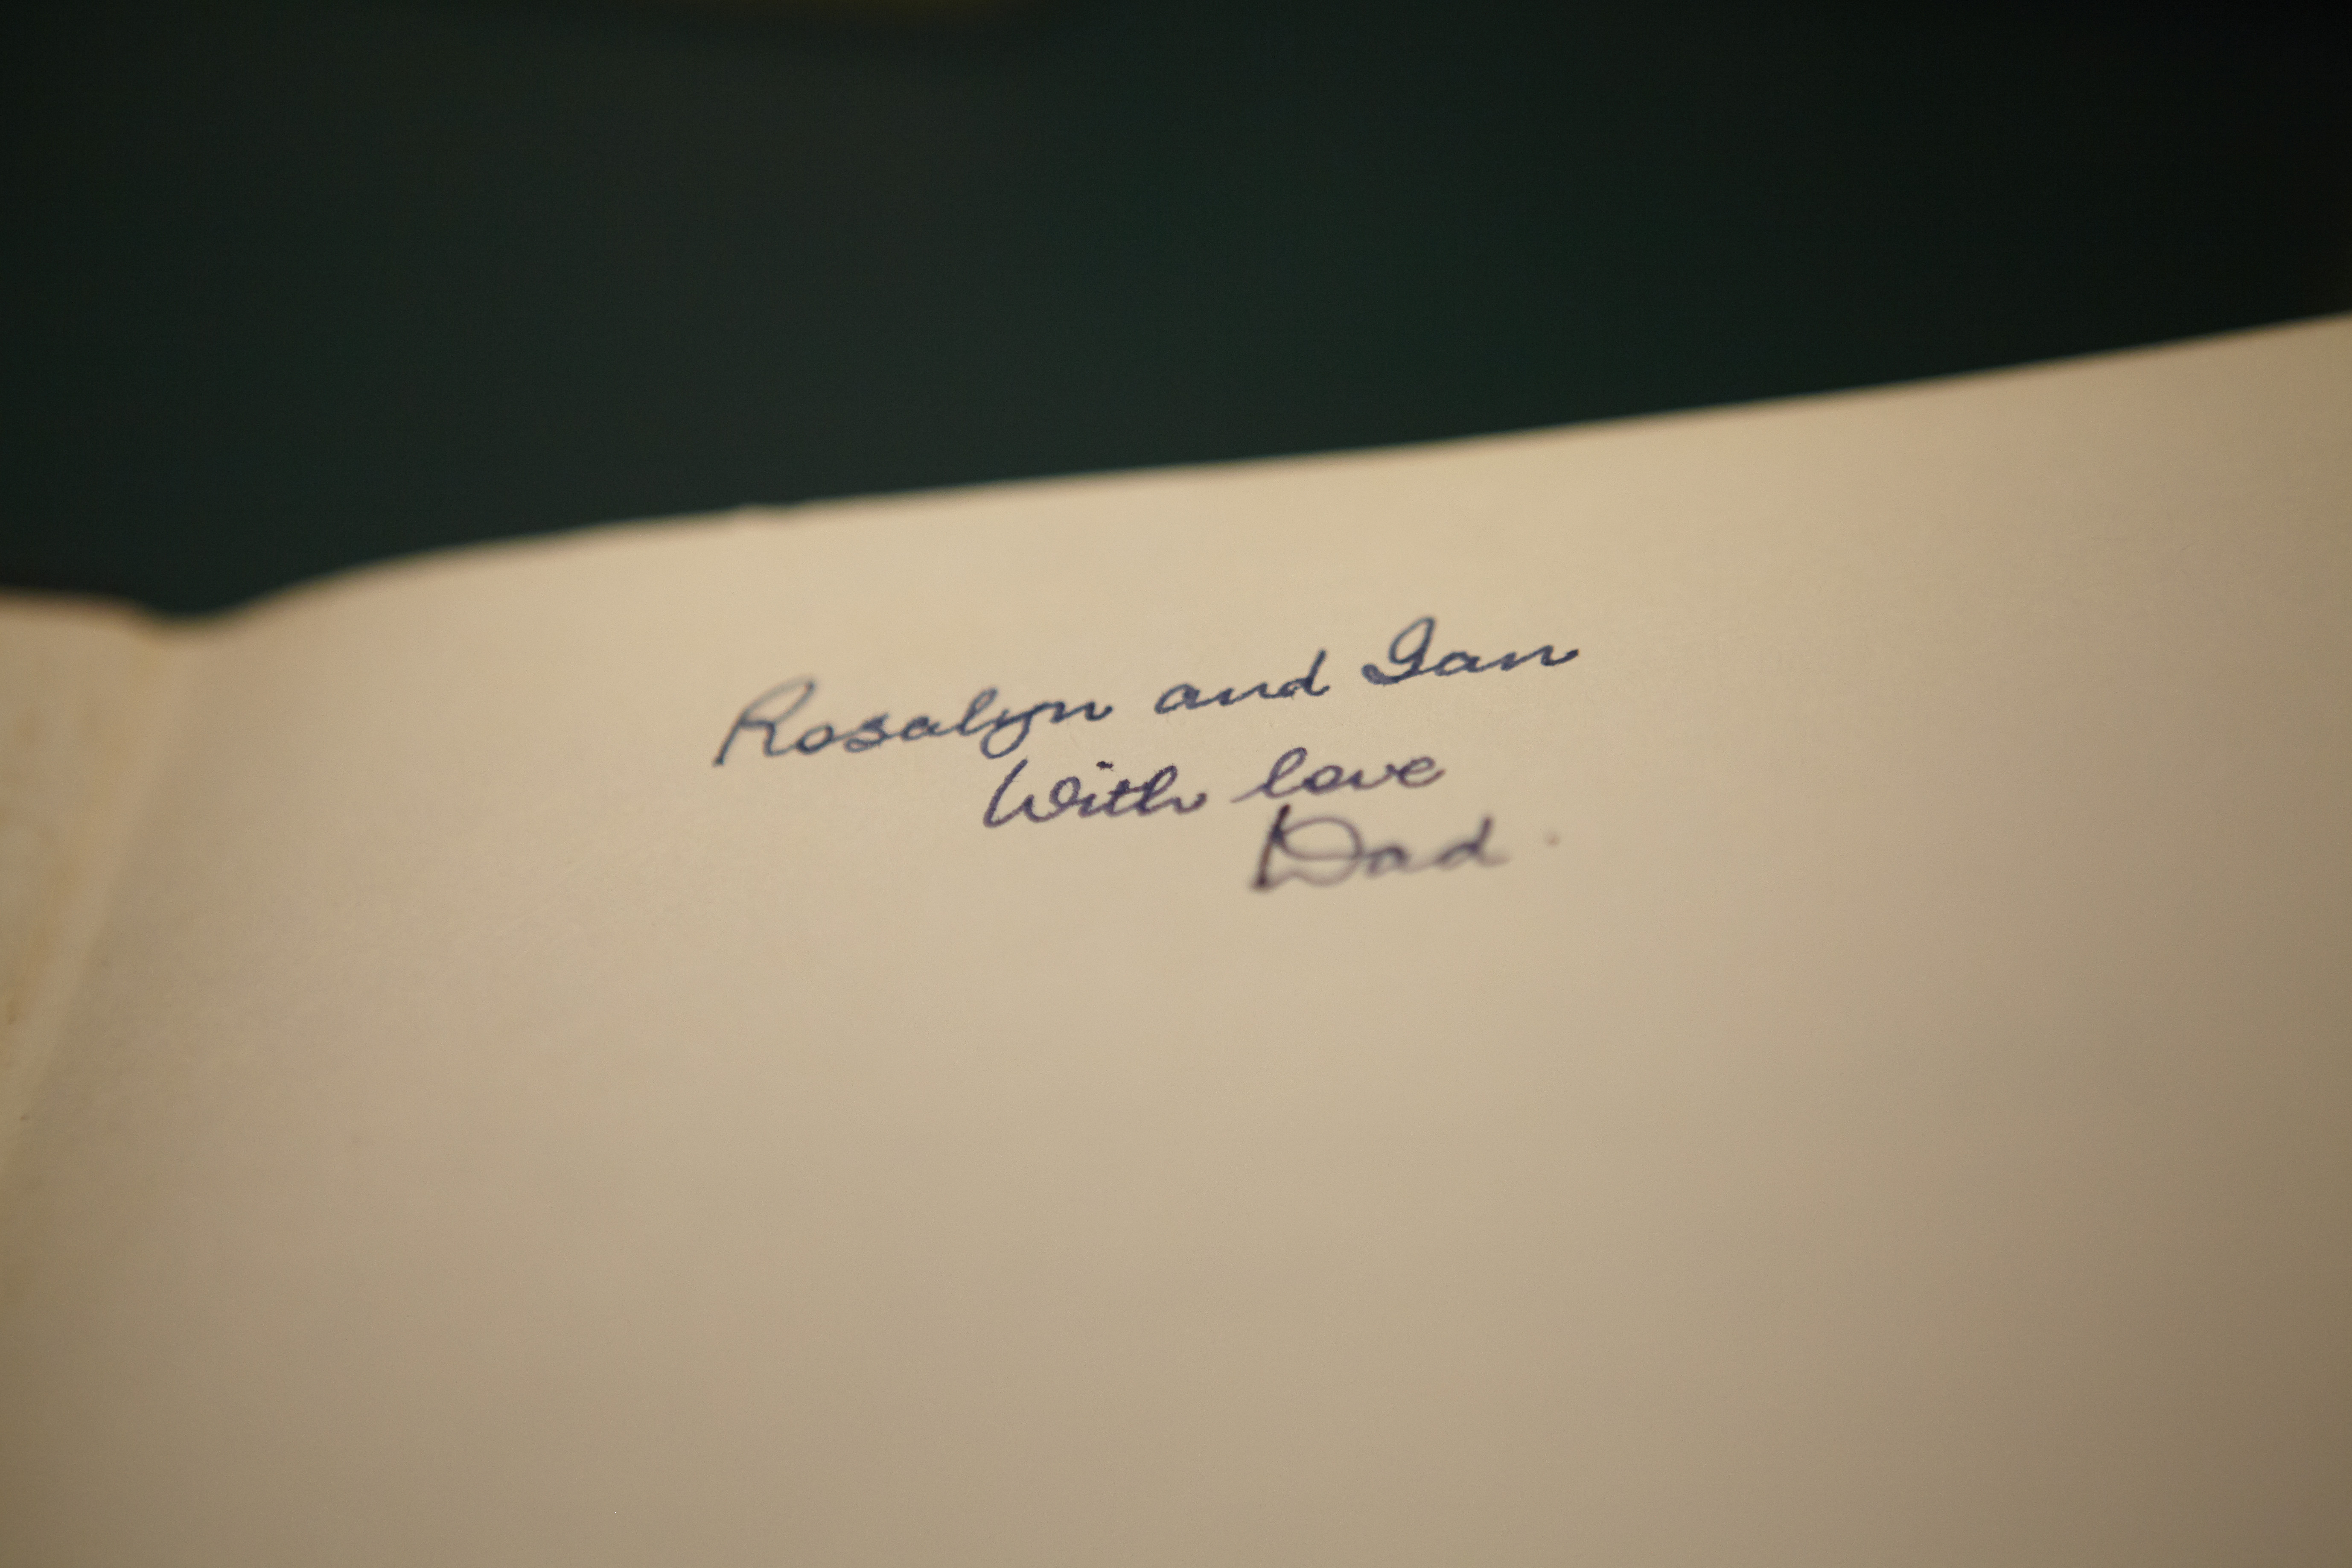 Rosalyn and Ian
With love
Dad.